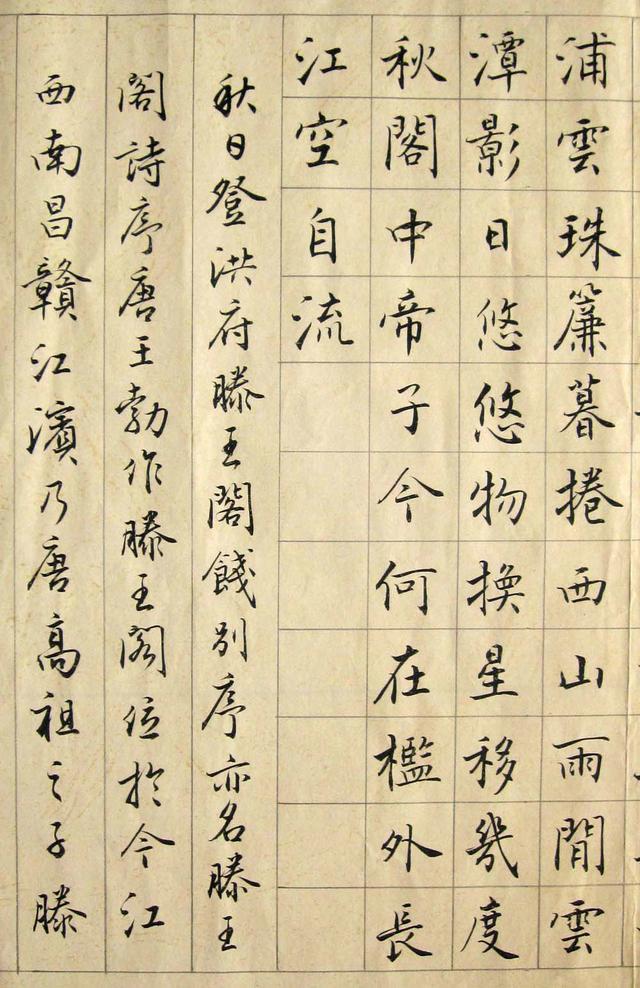 浦雲珠簾暮捲西山雨閒雲
潭影日悠悠物換星移幾度
秋閣中帝子今何在檻外長
江空自流
秋日登洪府滕王閣餞別序亦名滕王
閣詩序唐王勃作滕王閣位於今江
西南昌贛江濱乃唐高祖之子滕